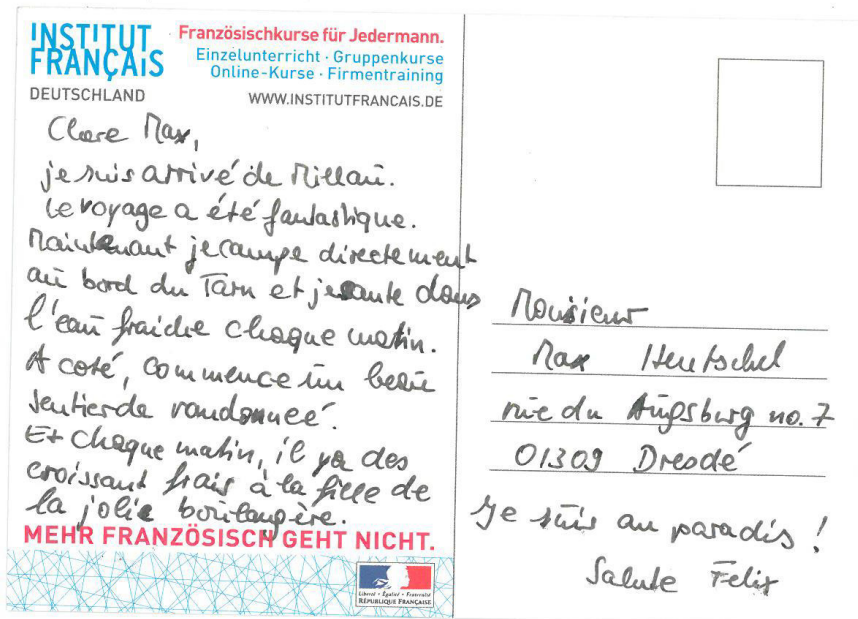 INSTITUT
FRANÇAIS
DEUTSCHLAND
Französischkurse für Jedermann.
Einzelunterricht · Gruppenkurse
Online-Kurse · Firmentraining
WWW.INSTITUTFRANCAIS.DE
Chere Max,
je suis arrivé de Millau.
Le voyage a été fantastique.
Maintenant je campe directement
au bord du Tarn et je saute dans
l'eau fraiche chaque matin.
A coté, commence un beau
sentier de randonneé.
Et chaque matin, il ya des
croissant frais à la fille de
la jolie boulangère.
MEHR FRANZÖSISCH GEHT NICHT.
Liberté • Égalité • Fraternité
RÉPUBLIQUE FRANÇAISE
Monsieur
Max Hentschel
rue du Augsburg no. 7
01309 Dresdé
Je suis au paradis !
Salute Felix